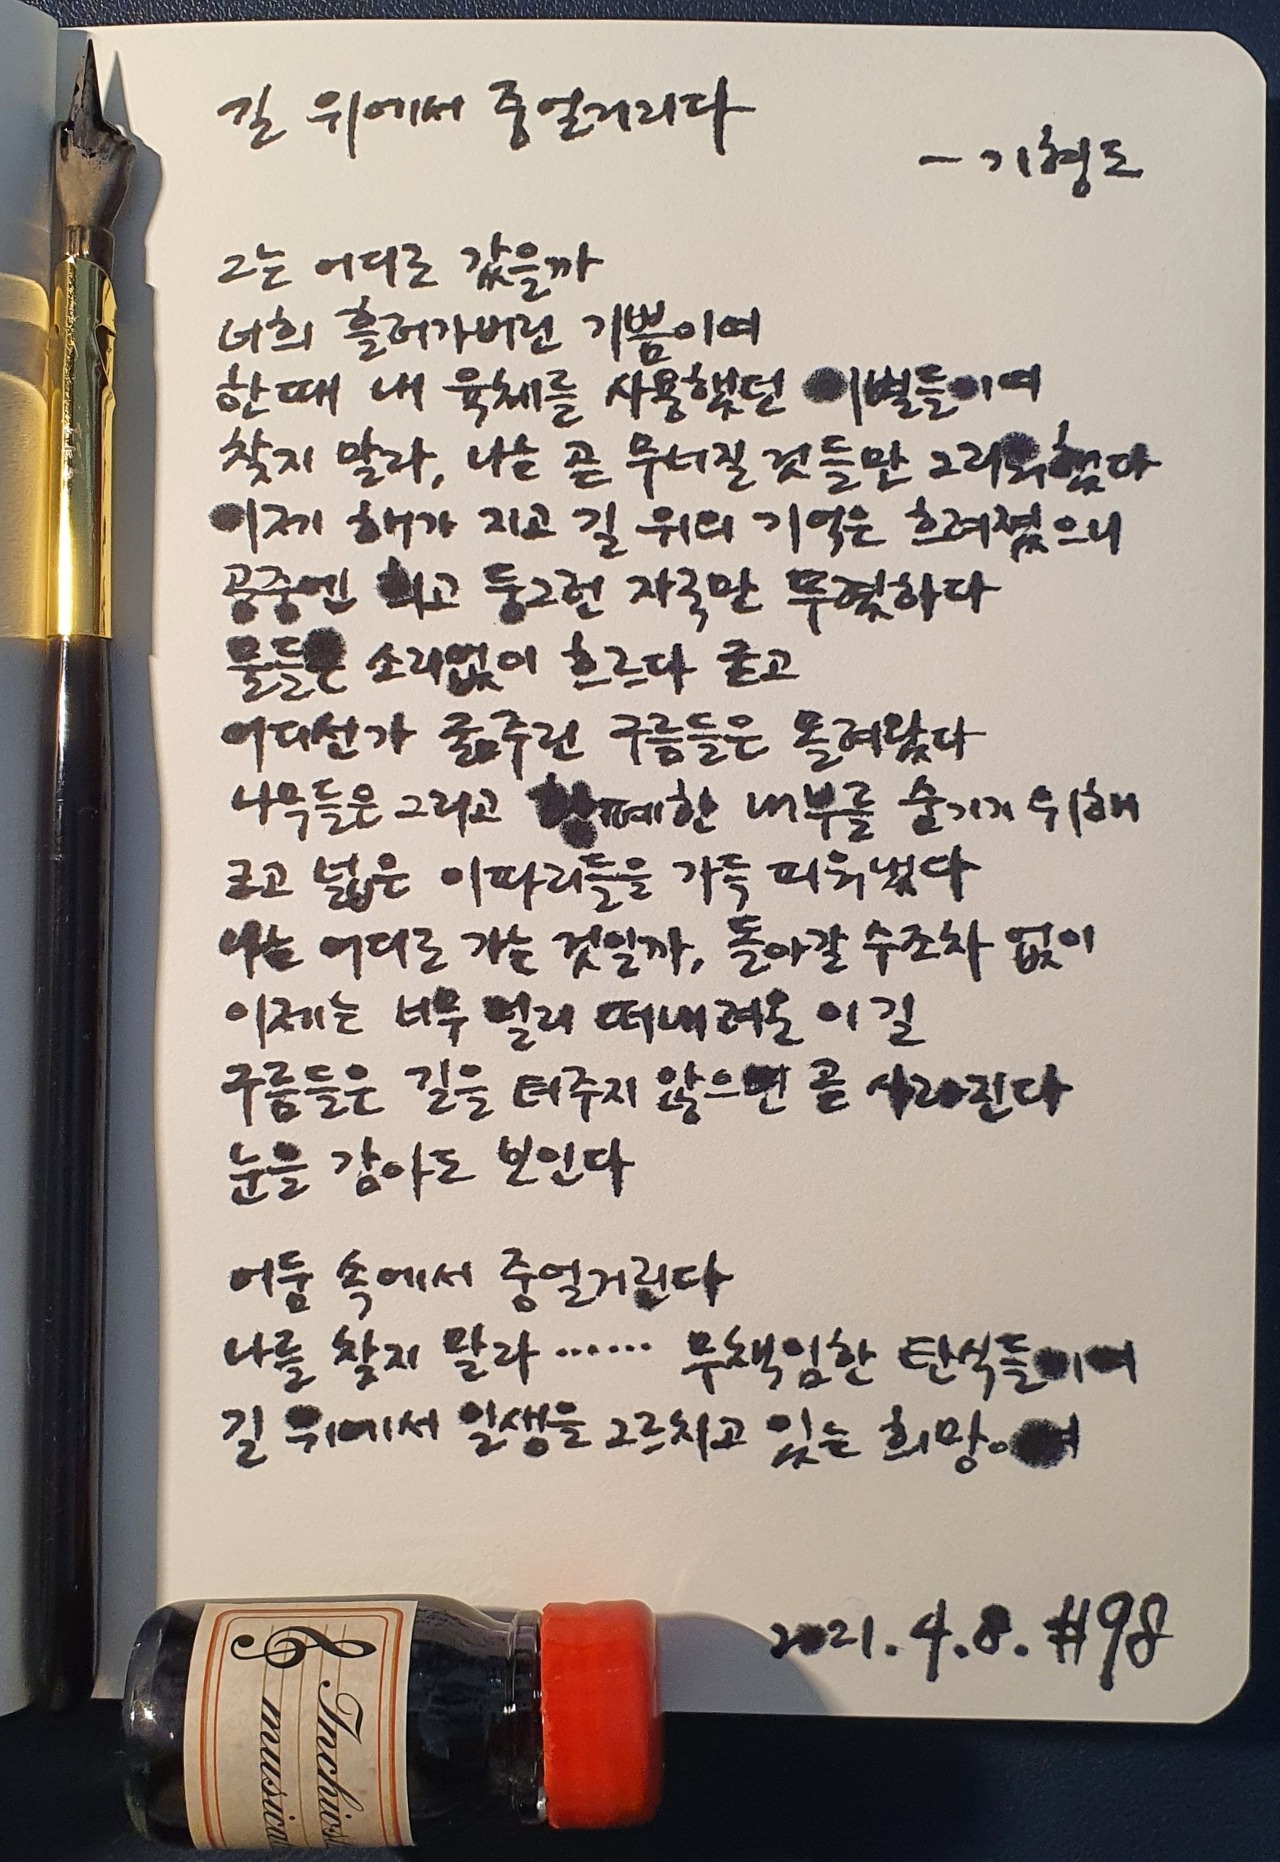 길 위에서 중얼거리다
- 기형도
그는 어디로 갔을까
너희 흘러가버린 기쁨이여
한때 내 육체를 사용했던 이별들이여
찾지 말라, 나는 곧 무너질 것들만 그리워했다
이제 해가 지고 길 위의 기억은 흐려졌으니
공중엔 희고 둥그런 자국만 뚜렷하다
물들은 소리없이 흐르다 굳고
어디선가 굶주린 구름들은 몰려왔다
나무들은 그리고 황폐한 내부를 숨기기 위해
크고 넓은 이파리들을 가득 피워냈다
나는 어디로 가는 것일까, 돌아갈 수조차 없이
이제는 너무 멀리 떠내려온 이 길
구름들은 길을 터주지 않으면 곧 사라진다
눈을 감아도 보인다
어둠 속에서 중얼거린다
나를 찾지 말라…… 무책임한 탄식들이여
길 위에서 일생을 그르치고 있는 희망이여
2021.4.8. #98